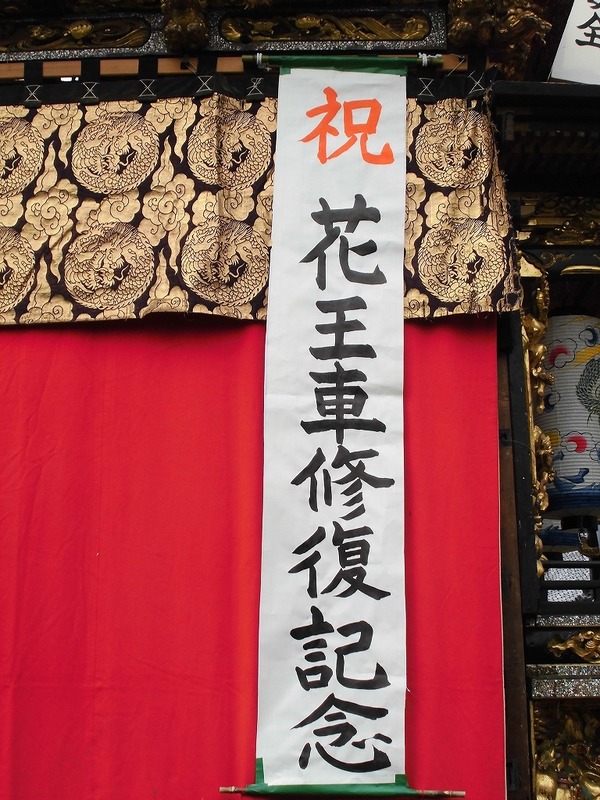 祝
花王車修復記念
全